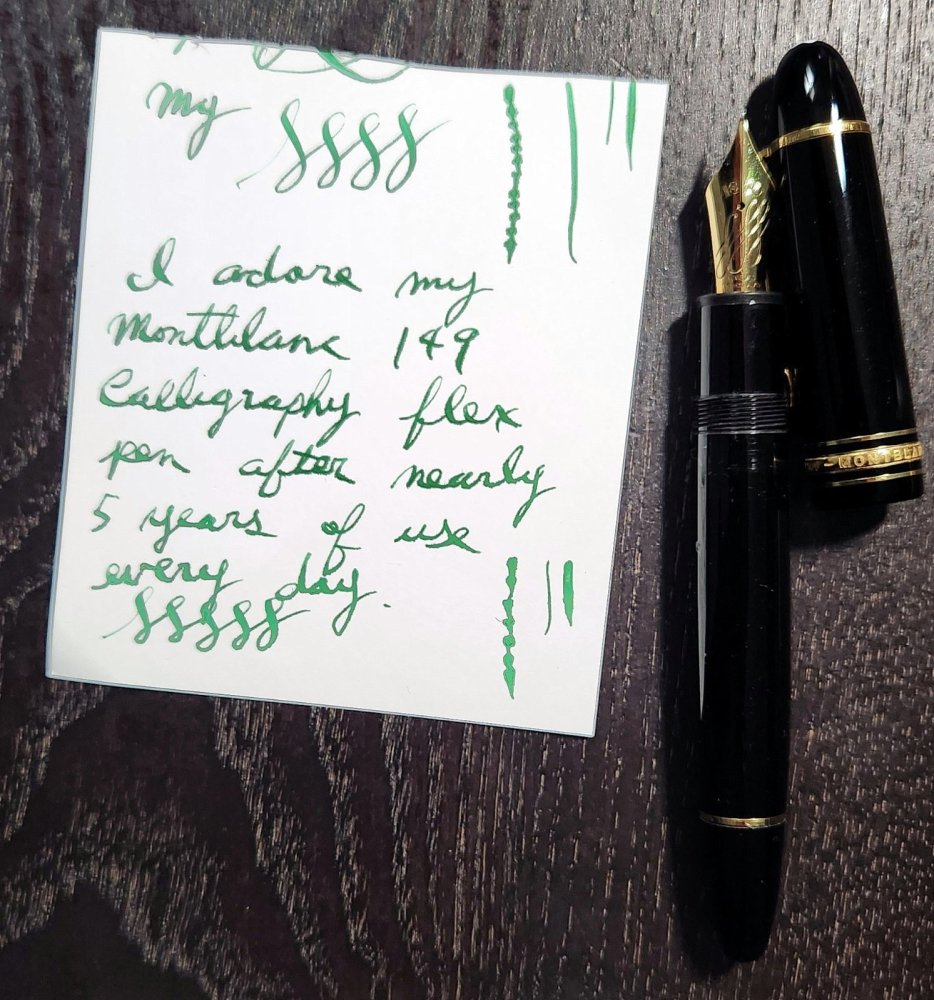 my ssss
I adore my
Montblanc 149
Calligraphy flex
pen after nearly
5 years of use
every day.
sssss
18
MONTBLANC